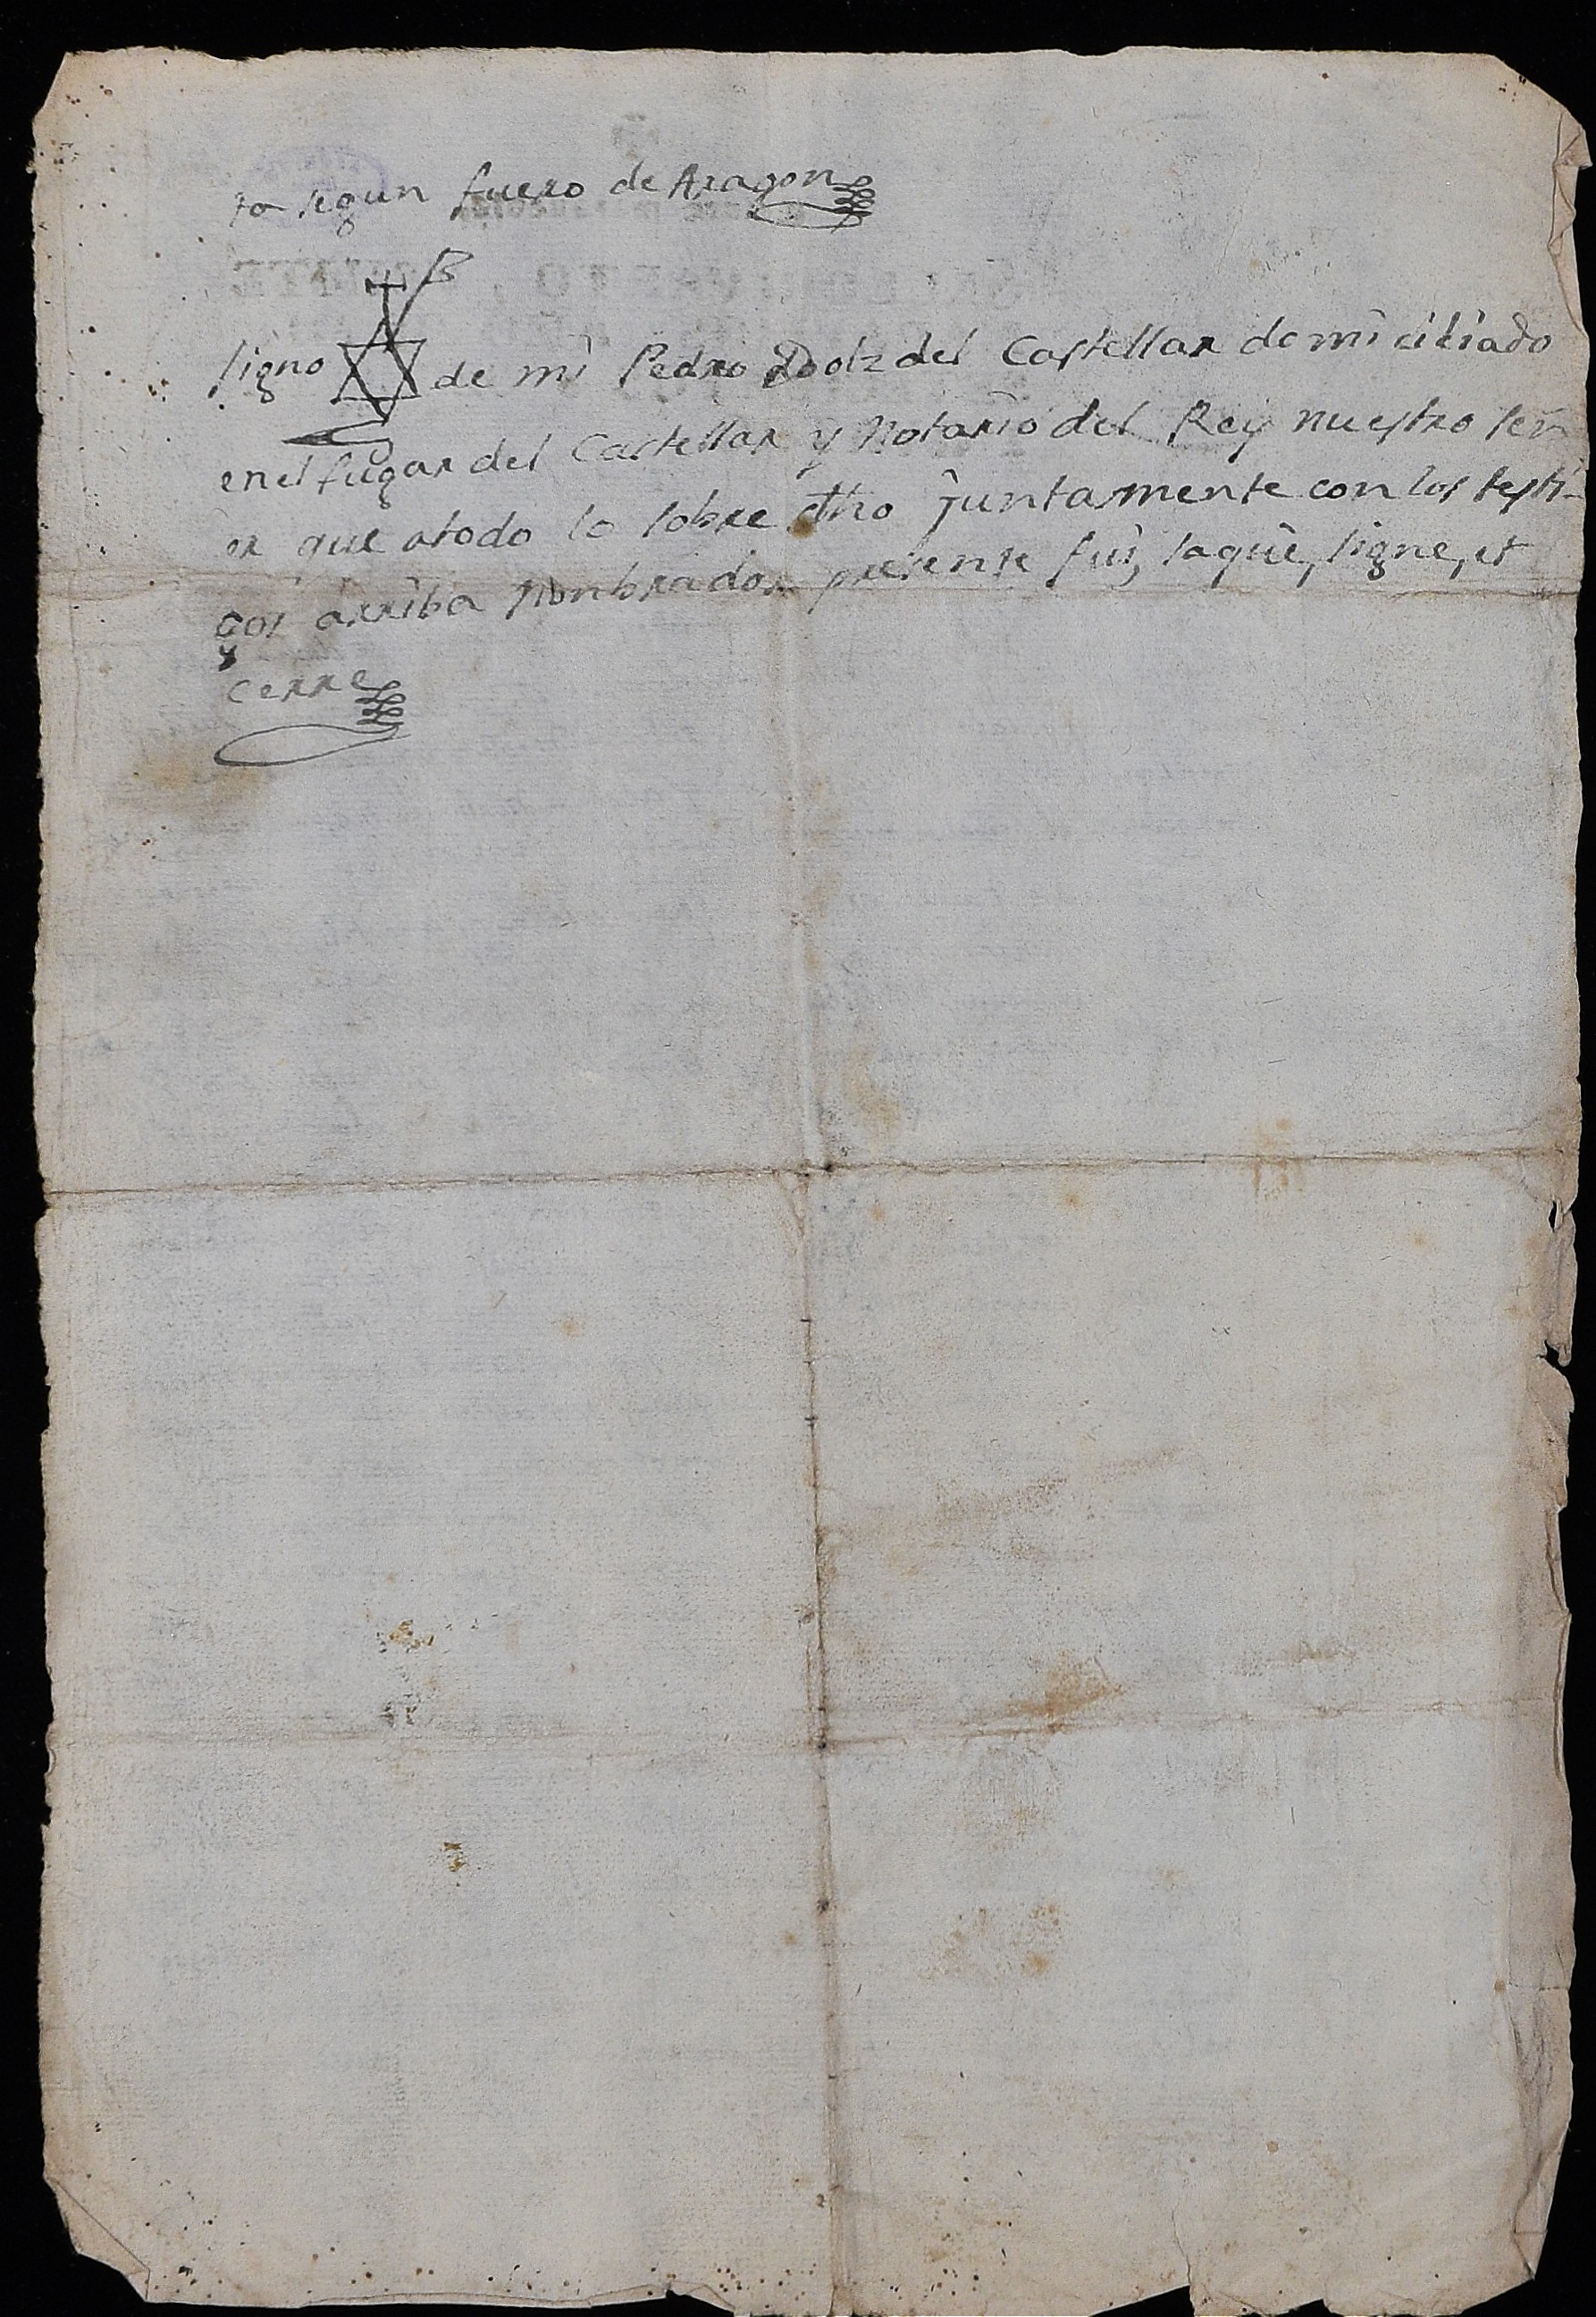 ta segun fuero de Aragon
signo de mi Pedro Dolz del Castellar domiciliado
en el Lugar del Castellar y Notario del Rey nuestro señ
or que atodo lo sobre dho juntamente con los testi-
gos arriba nonbrados presente fui, saque, signe, et
cerre